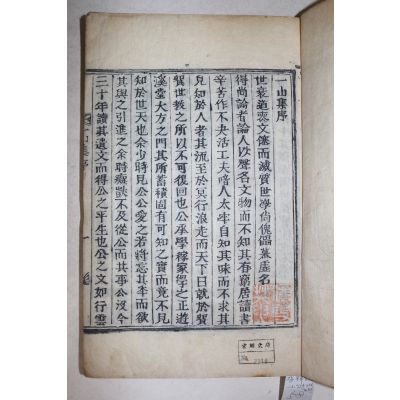 一山集序
世衰道喪文僞而滅質世學尙傀儡慕虛名
得尚論者論人以聲名文物而不知其春窮居讀書
辛苦作不決活工夫啽人太牢自知其味而不求
見知於人者其流至於冥行浪走而天下日就於
世敎之所以不可復回也公承學禪家學之正遊
溪堂大方之門其所蓄積固有可知之實而竟不見
知於世天也余少時見公公愛之若將忘其年而欲
其與之引進之余時癡騃不及從公而其事公沒今
三十年讀其遺文而得公之平生也公之文如行雲
一山集序
一